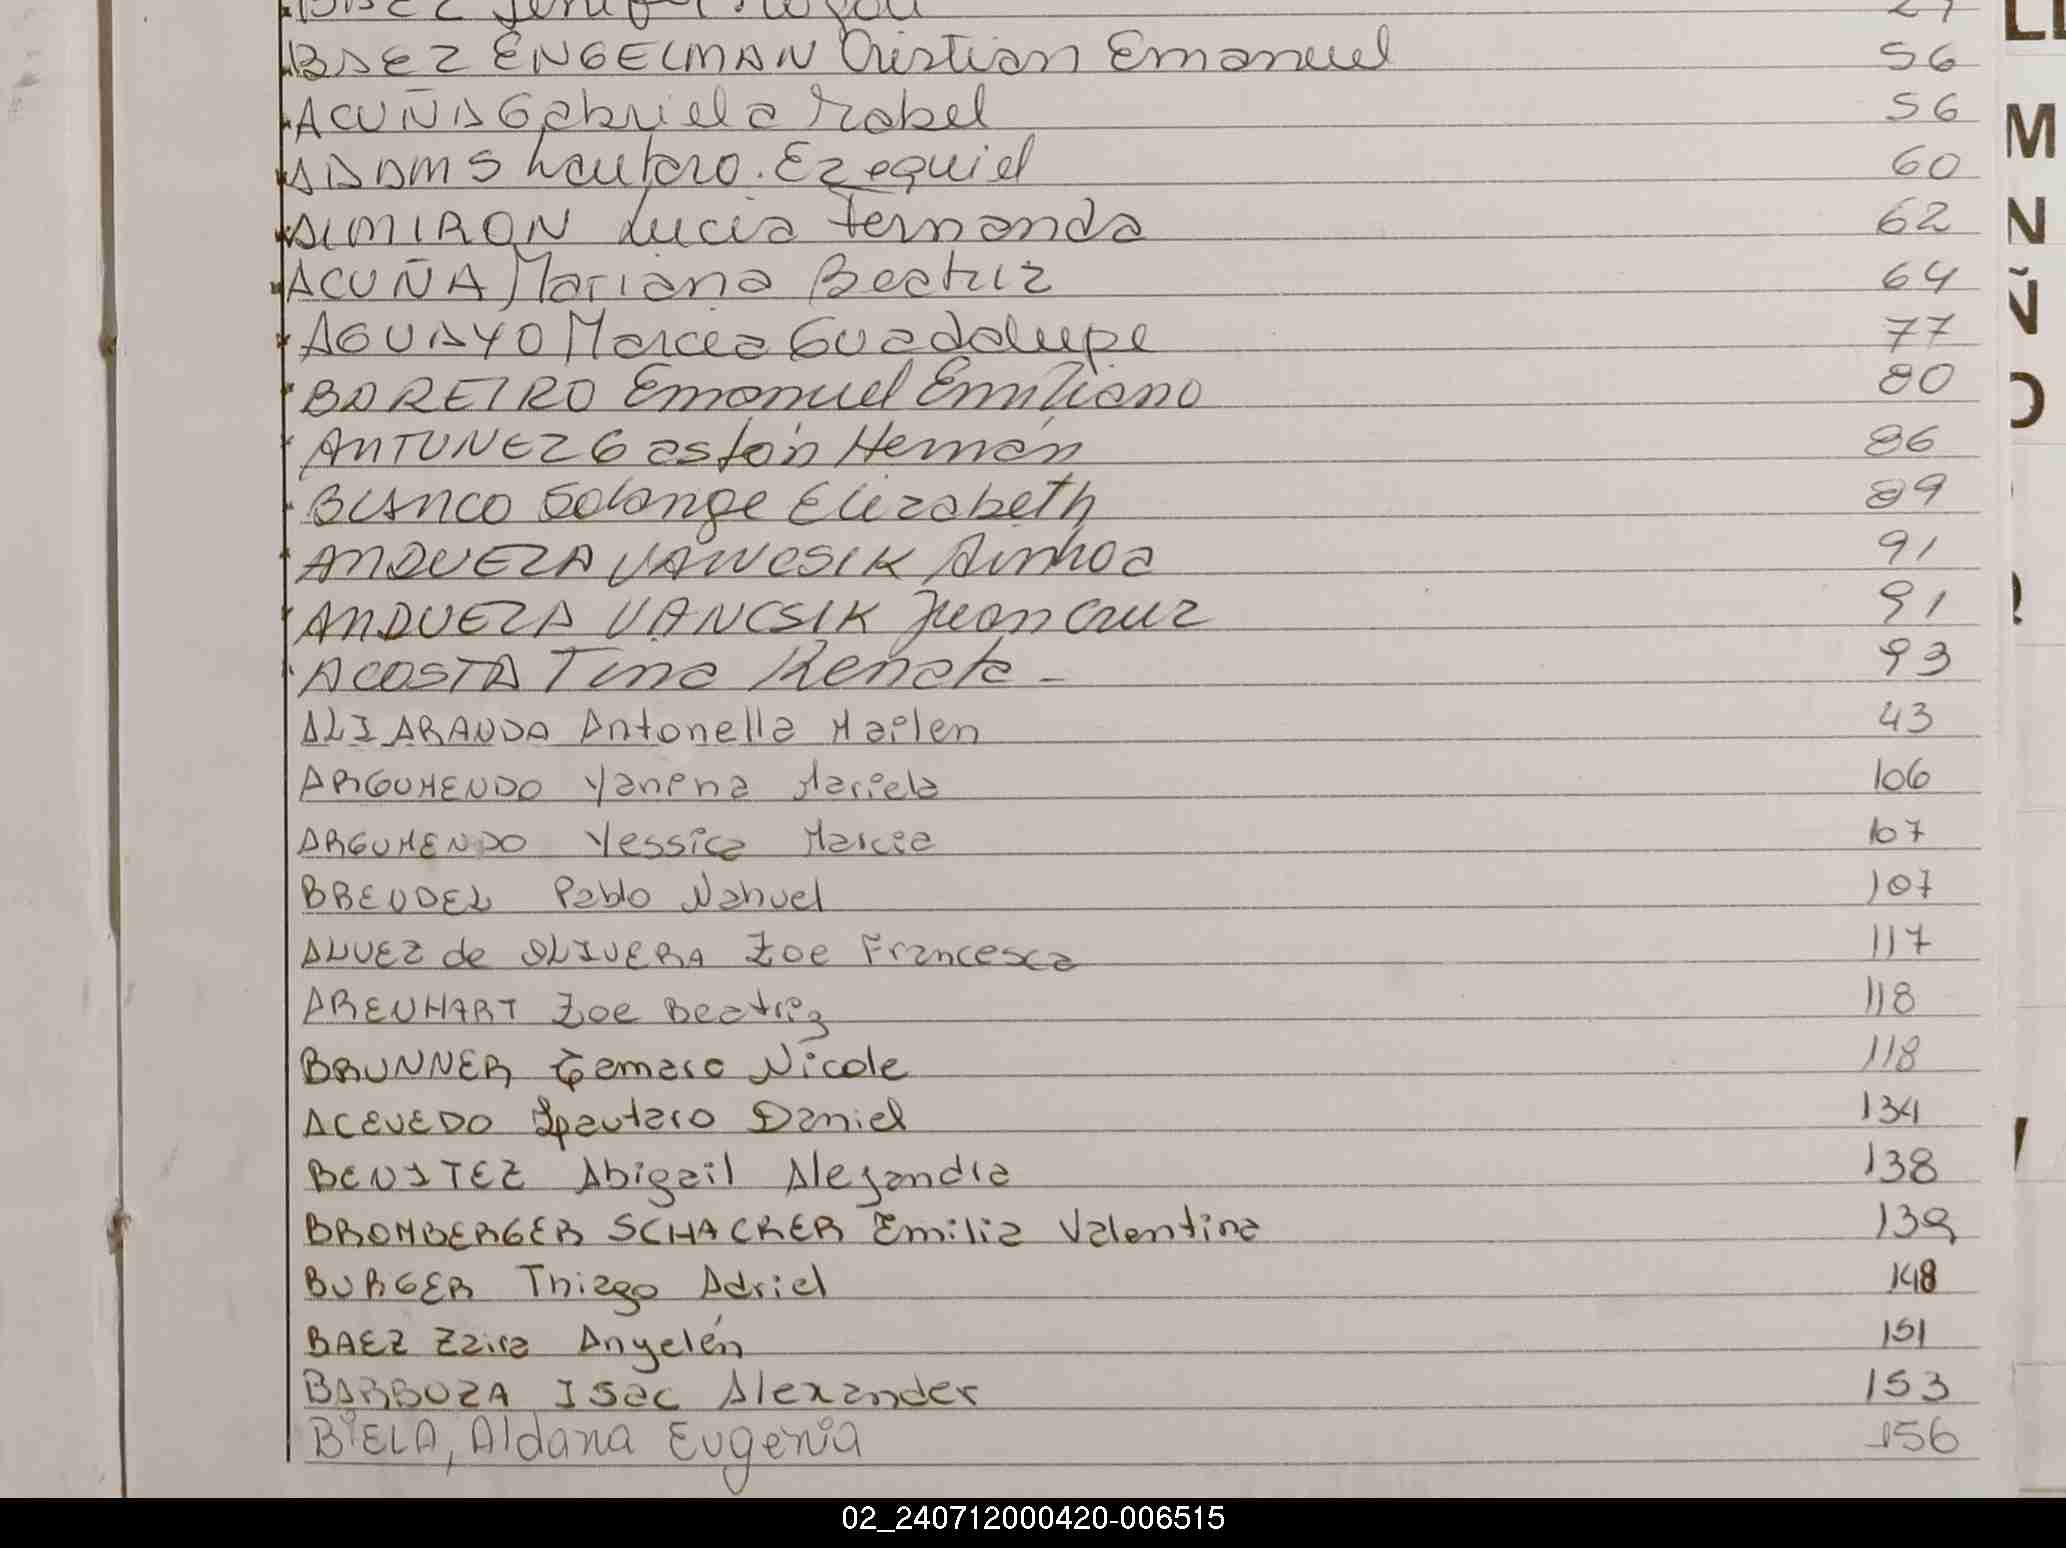 BAEZ 27
BAEZ ENGELMAN Cristian Emanuel 56
ACUÑA Gabriela Mabel 56
ADAMS Lautaro Ezequiel 60
ALMIRON Lucia Fernanda 62
ACUÑA Mariana Beatriz 64
AGUAYO Marcia Guadalupe 77
BAREIRO Emanuel Emiliano 80
ANTUNEZ Gastón Hernán 86
BLANCO Solange Elizabeth 89
ANDUEZA VANCSIK Ainhoa 91
ANDUEZA VANCSIK Juan Cruz 91
ACOSTA Tina Renata - 93
ALI ARANDA Antonella Mailen 43
ARGUMENDO Yanina Mariela 106
ARGUMENDO Yessica Marcia 107
BRENDEL Pablo Nahuel 107
ALVEZ de OLIVERA Zoe Francesca 117
ARENHART Zoe Beatriz 118
BRUNNER Tamara Nicole 118
ACEVEDO Lautaro Daniel 134
BENITEZ Abigail Alejandra 138
BROMBERGER SCHACRER Emilia Valentina 139
BURGER Thiago Adriel 148
BAEZ Zaira Anyelén 151
BARBOZA Isac Alexander 153
BIELA, Aldana Eugenia 156
LL
M
N
Ñ
O
Q
02_240712000420-006515